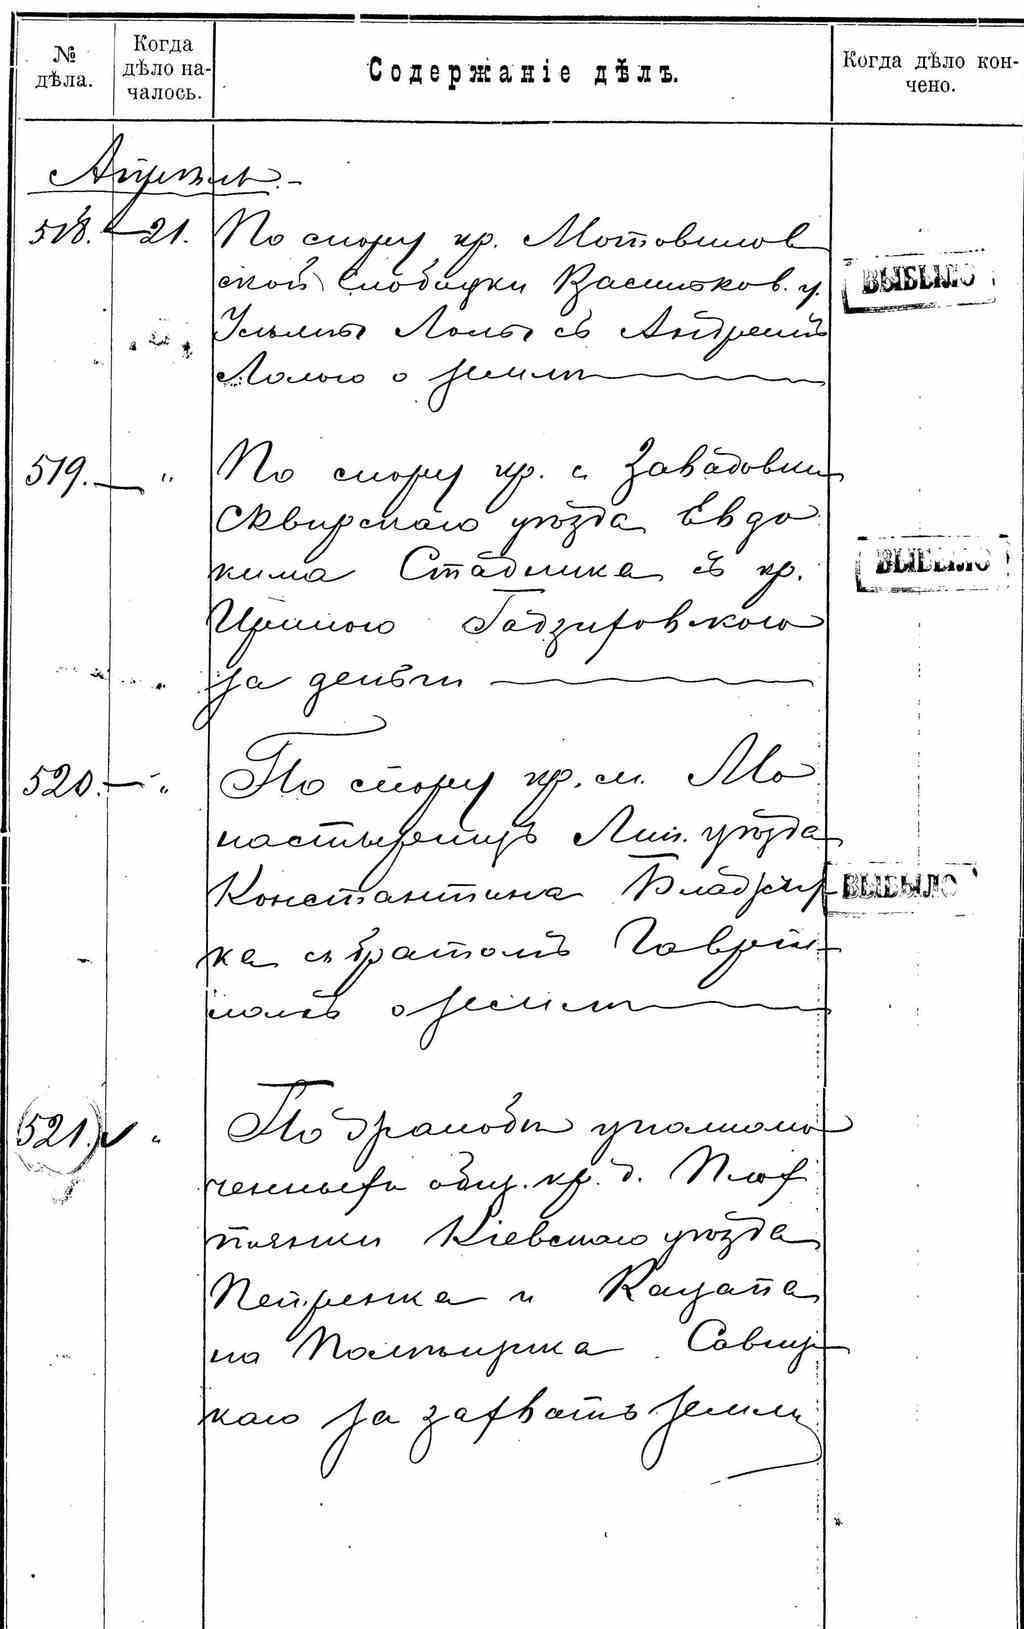 № дѣла.
Когда дѣло на-
чалось.
Содержаніе дѣлъ.
Когда дѣло кон-
чено.
Апрель.
518. 21. По спору кр. Мотовилов
ской Слободки Васильков. у.
Лолы съ Андреемъ
Лолою о землѣ
ВЫБЫЛО
519. " По спору кр. с. Завадовки
Сквирскаго уѣзда Евдо
кима Стадника съ кр.
за деньги
ВЫБЫЛО
520. " По спору кр. м. Мо
настырищъ Лип. уѣзда
Константина
ка съ братомъ Гаври
ломъ о землѣ
ВЫБЫЛО
521. " По жалобѣ уполномо
ченныхъ общ. кр. д. Плях
тянки Кіевскаго уѣзда
Петренка и Кацапа
на Савиц
каго за захватъ земли